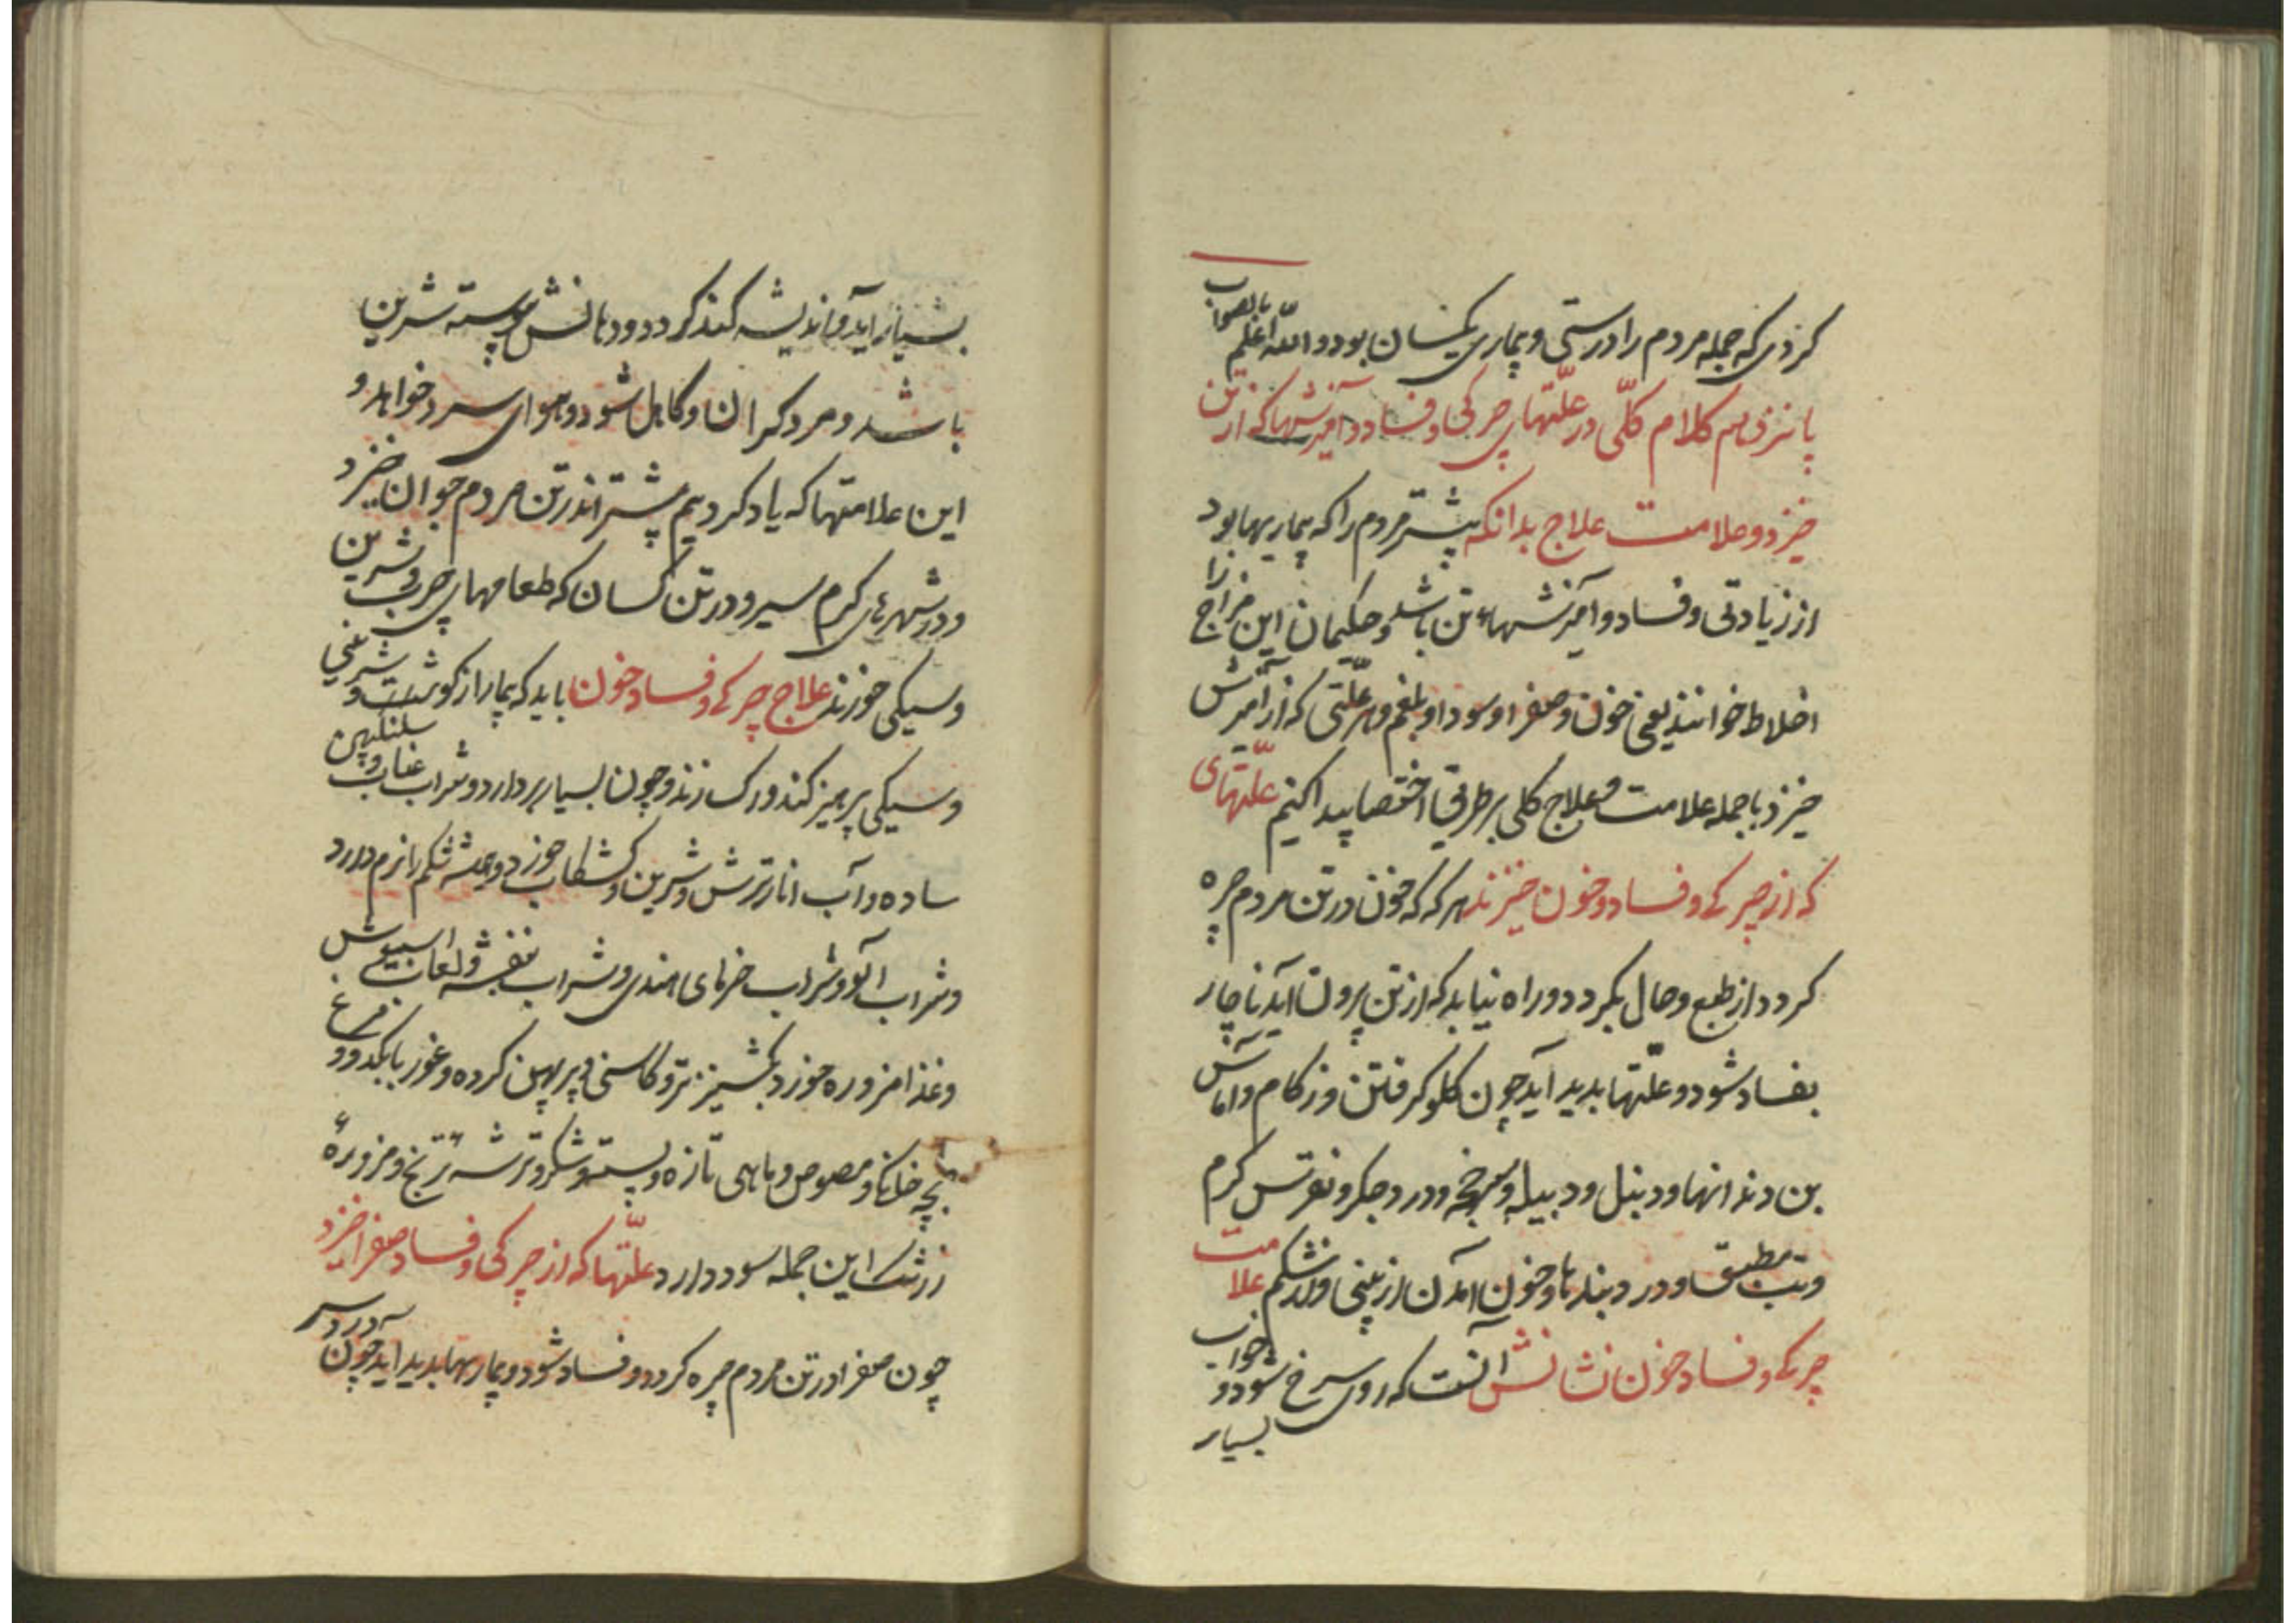 کردی که جمله مردم را درستی و بیماری یکسان بودو والله اعلم بالصواب
پانزدهم کلام کلّی در علّتهای چرکی و فساد و آمیزشها که از تن
خیزد و علامت علاج بدانکه بیشتر مردم را که بیماریها بود
از زیادتی و فساد و آمیزشهاء تن باشد و حکیمان این مزاج را
اخلاط خوانند یعنی خون و صفرا و سودا و بلغم و هر علّتی که از آمیزش
خیزد با جمله علامت و علاج کلی بر طریق اختصا پیدا کنیم علّتهای
که از چیرکی و فساد و خون خیزند هر که که خون در تن مردم چیره
کردد از طبع و حال بکردد و راه نیابد که از تن برون آید ناچار
بفساد شود و علّتها بدید آید چون کلو کرفتن و زکام و آماس
بن دندانها و دنبل و دبیله و سرخجه و درد جکر و نقرس کرم
و تب مطبق و درد بندها و خون آمدن از بینی و از شکم علامت
چیرکی و فساد خون نشانش آنست که روی سرخ شود و خواب
بسیار
بسیار آید و اندیشه کند کردد و دهانش پیوسته شیرین
باشد و مرد کران و کاهل شود و هوای سرد خواهد و
این علامتها که یاد کردیم بیشتر اندر تن مردم جوان خیزد
و در شهرهای کرم سیر و در تن کسان که طعامهای چرب و شیرین
و سیکی خورند علاج چیرکی و فساد خون باید که بیمار از کوشت و شیرینی
و سیکی پرهیز کند و رک زند و خون بسیار بردارد و شراب عناب و سکنکبین
ساده و آب انار ترش و شیرین و کشکاب خورد و همیشه شکم را نرم دارد
و شراب آلو و شراب خرمای هندی و شراب بنفشه و لعاب اسبیوش
و غذا مزوره خورد بکشنیز تر و کاسنی و پرپهن کرده و غوربا بکدو و مرغ
بچه خلانکا و مصوص و ماهی تازه و پست و شکر و ترشه ترنج و مزورهٔ
زرشک این جمله سود دارد علّتها که از چیرکی و فساد صفرا خیزد
چون صفرا در تن مردم چیره کردد و فساد شود و بیماریها بدید آید چون درد سر